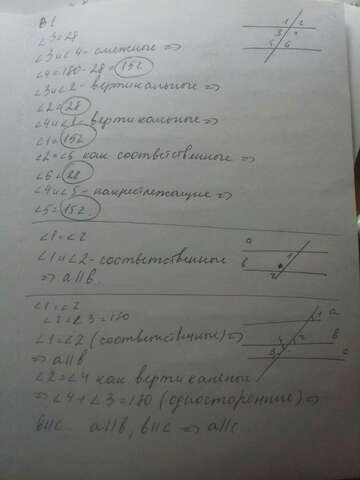 В1
∠3=28
∠3 и ∠4 - смежные ⇒
∠4=180-28=152
∠3 и ∠2 - вертикальные ⇒
∠2=28
∠4 и ∠1 - вертикальные ⇒
∠1=152
∠2=∠6 как соответственные ⇒
∠6=28
∠4 и ∠5 - накрестлежащие ⇒
∠5=152
1 2
3
5 6
∠1=∠2
∠1 и ∠2 - соответственные
⇒ a||b
a
в
1
2
∠1=∠2
∠2+∠3=180
∠1=∠2 (соответственные) ⇒
⇒ a||b
∠2=∠4 как вертикальные
⇒ ∠4+∠3=180 (односторонние) ⇒
b||c. a||b, b||c ⇒ a||c
1 a
4 2 b
3 c